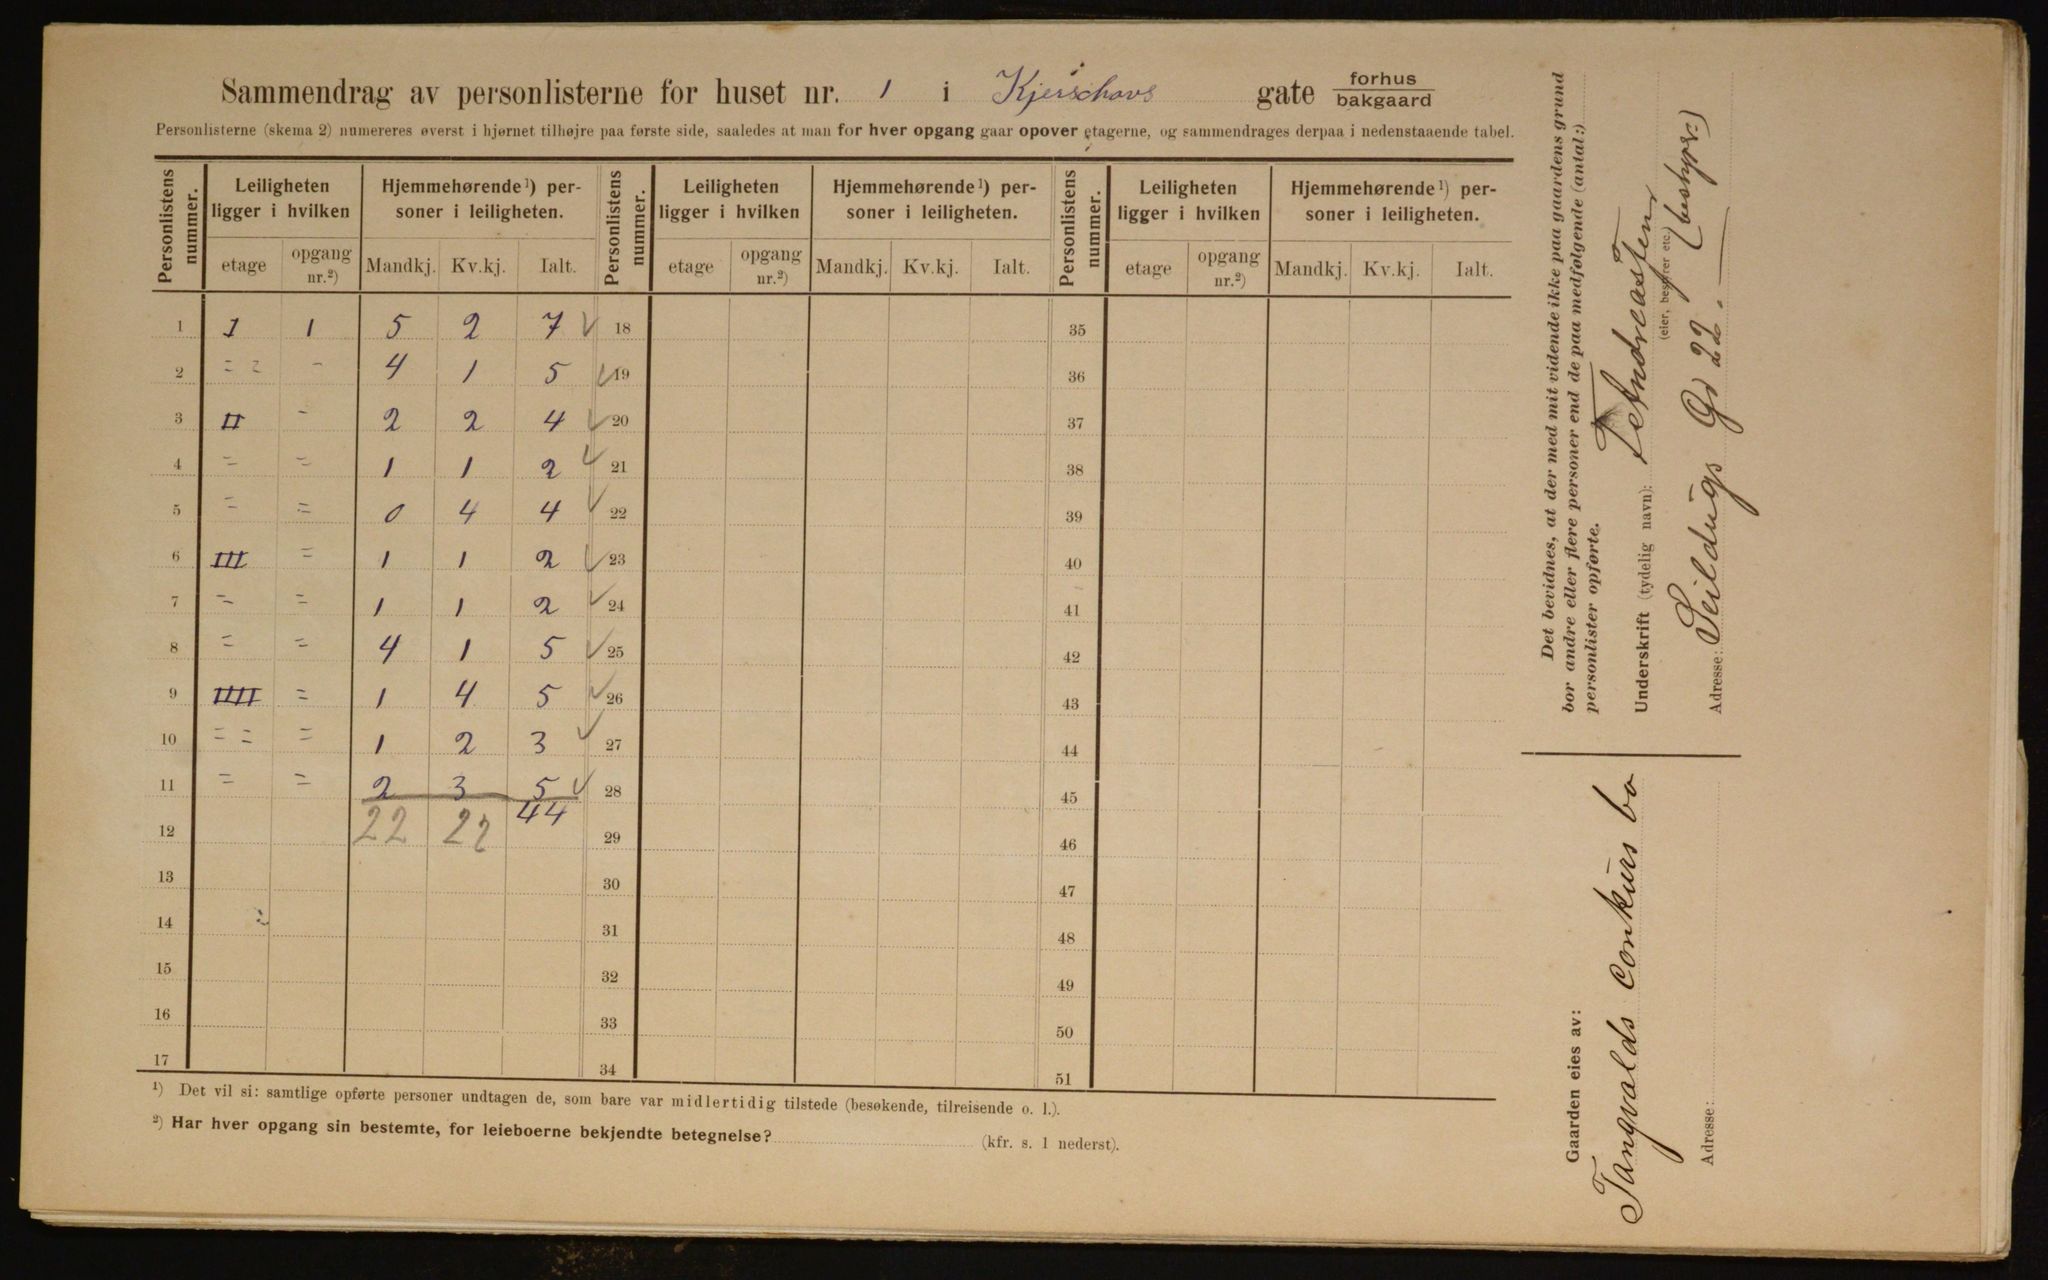 Sammendrag av personlisterne for huset nr. 1 i Kjerschovs gate forhus bakgaard
Personlisterne (skema 2) numereres øverst i hjørnet tilhøjre paa første side, saaledes at man for hver opgang gaar opover etagerne, og sammendrages derpaa i nedenstaaende tabel.
Personlistens nummer. Leiligheten ligger i hvilken Hjemmehørende ¹) personer i leiligheten. Personlistens nummer. Leiligheten ligger i hvilken Hjemmehørende ¹) personer i leiligheten. Personlistens nummer. Leiligheten ligger i hvilken Hjemmehørende ¹) personer i leiligheten.
etage opgang nr.²) Mandkj. Kv.kj. Ialt. etage opgang nr.²) Mandkj. Kv.kj. Ialt. etage opgang nr.²) Mandkj. Kv.kj. Ialt.
1 I 1 5 2 7 ✓ 18 35
2 = = - 4 1 5 ✓ 19 36
3 II - 2 2 4 ✓ 20 37
4 = = 1 1 2 ✓ 21 38
5 = = 0 4 4 ✓ 22 39
6 III = 1 1 2 ✓ 23 40
7 = = 1 1 2 ✓ 24 41
8 = = 4 1 5 ✓ 25 42
9 IIII = 1 4 5 ✓ 26 43
10 = = = 1 2 3 ✓ 27 44
11 = = 2 3 5 ✓ 28 45
12 22 22 44 29 46
13 30 47
14 31 48
15 32 49
16 33 50
17 34 51
¹) Det vil si: samtlige opførte personer undtagen de, som bare var midlertidig tilstede (besøkende, tilreisende o. l.).
²) Har hver opgang sin bestemte, for leieboerne bekjendte betegnelse? (kfr. s. 1 nederst).
Det bevidnes, at der med mit vidende ikke paa gaardens grund
bor andre eller flere personer end de paa medfølgende (antal:)
personlister opførte.
Underskrift (tydelig navn):
(eier, bestyrer etc.) (bestyrer)
Adresse: Seildugs Gd 22.
Gaarden eies av:
Tangvalds conkurs bo
Adresse: